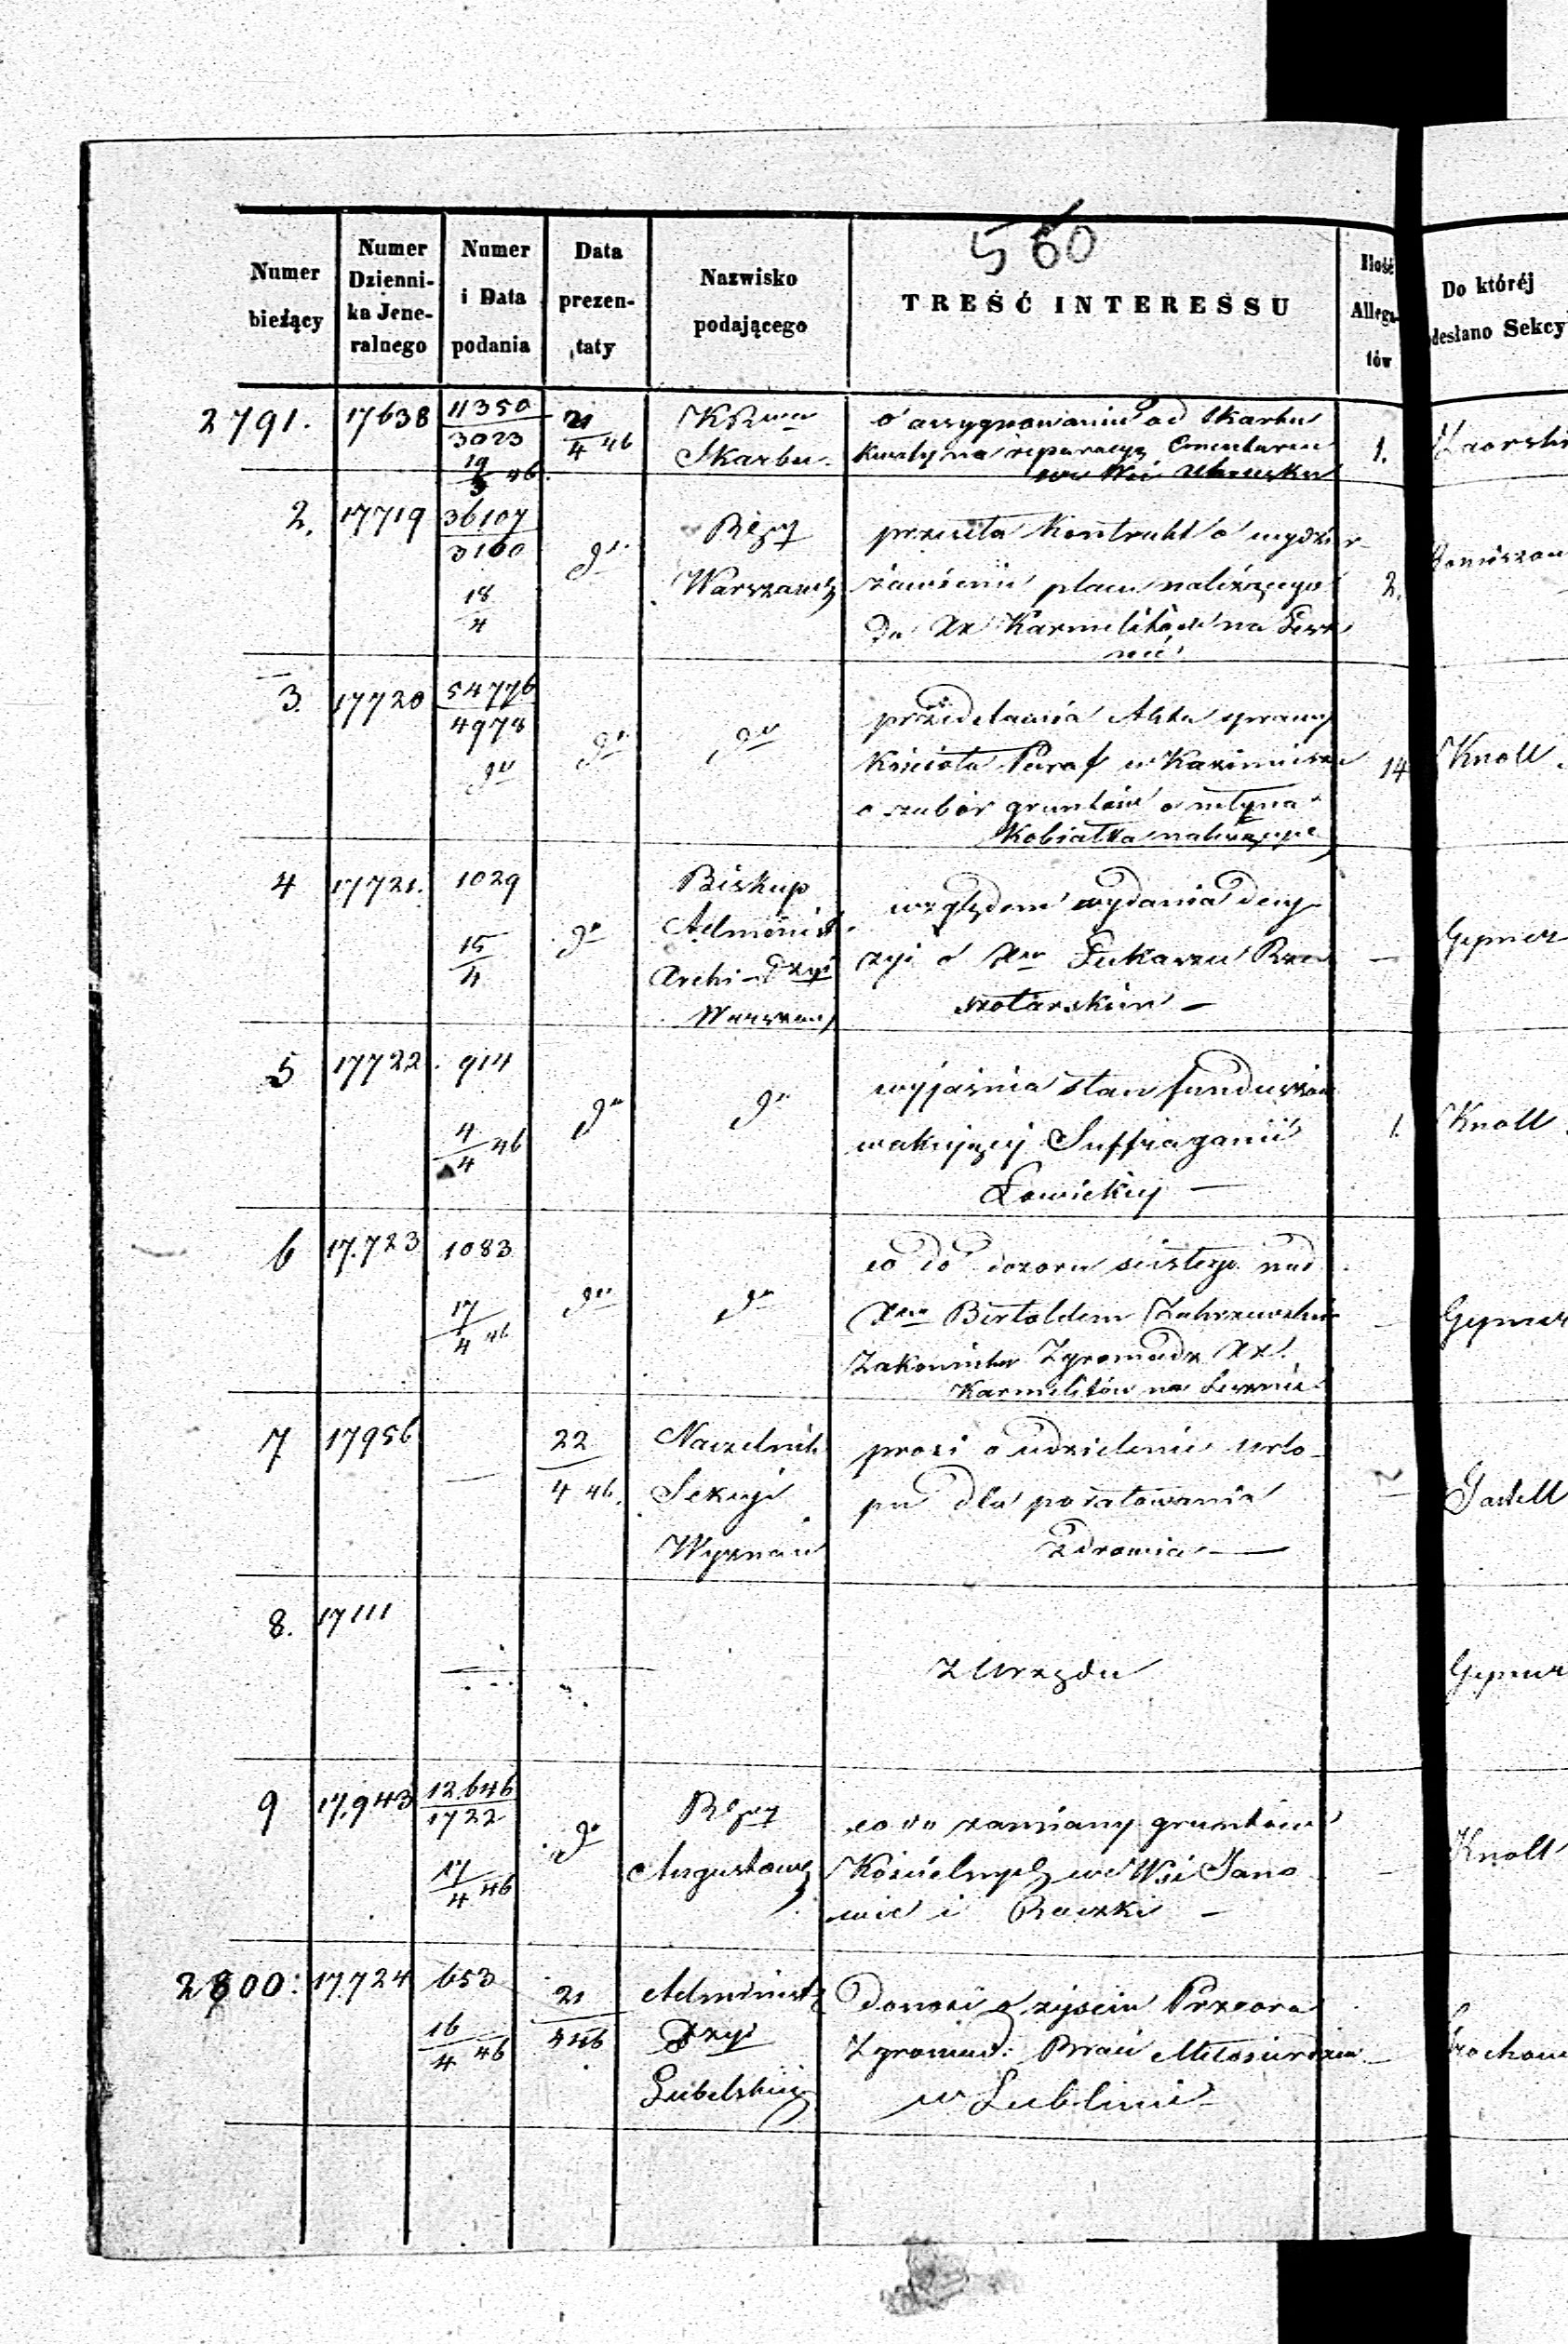 560
Numer bieżący
Numer Dzienni-ka Jene-ralnego
Numer i Data podania
Data prezen-taty
Nazwisko podającego
TREŚĆ INTERESSU
Ilość Allega-tów
Do któréj
desłano Sekcy
2791. 17638 11350/3023 19/3 46. 21/4 46
Skarbu
o assygnowanie od Skarbu
kwoty na reparacyę Cmentarza
we Wsi
1.
2. 17719 36107/3160 18/4 do
Warszaws
przesyła Kontrakt o wydzier-
żawienie placu należącego
do XX Karmelitów na Lesz
nie
2.
3. 17720 54776/4978 do do do
przedstawia Akta sprawy
Kościoła Paraf w Kazimierzu
o zabór gruntów o młyna
Kobiałka należące
14 Knoll
4 17721. 1029 15/4 do
Biskup
Administ
Archi-Dyec
Warszaw
względem wydania decy-
zyi o Xu Łukaszu Rze
szotarskim —
—
5 17722. 914 4/4 46 do do
wyjaśnia stan funduszów
wakującej Suffraganii
Łowickiej —
1. Knoll
6 17.723 1083 17/4 46 do do
co do dozoru ścisłego nad
Xem Bertoldem Zakrzewskim
Zakonnika Zgromadz XX.
Karmelitów na Lesznie
—
7 17956 — 22/4 46.
Naczelnik
Sekcyi
Wyznań
prosi o udzielenie urlo-
pu dla poratowania
zdrowia —
8. 17111
Z Urzędu
9 17.943 12.646/1722 17/4 46 do
Augustows
co do zamiany gruntów
Kościelnych we Wsi Jano
wie i Raczki —
Knoll
2800: 17.724 653 16/4 46 21/4 46
Administr
Dyec
Lubelskiej
donosi o zejściu Przeora
Zgromad: Braci Miłosierdzia
w Lublinie
—